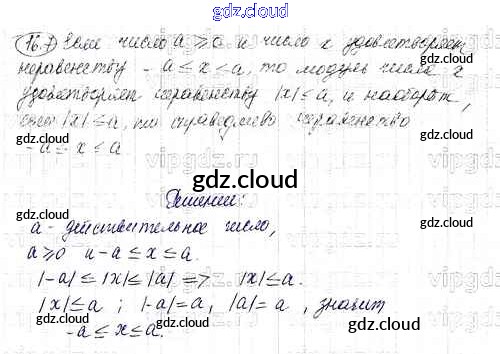 gdz.cloud
16.7 Если число a ≥ 0 и число x удовлетворяет
неравенству -a ≤ x ≤ a, то модуль числа x
удовлетворяет неравенству |x| ≤ a, и наоборот,
если |x| ≤ a, то справедливо неравенство
-a ≤ x ≤ a
gdz.cloud
gdz.cloud
gdz.cloud
Решение:
a - действительное число,
a ≥ 0 и -a ≤ x ≤ a.
|-a| ≤ |x| ≤ |a| => |x| ≤ a.
|x| ≤ a ; |-a| = a, |a| = a, значит
-a ≤ x ≤ a.
gdz.cloud
gdz.cloud
gdz.cloud